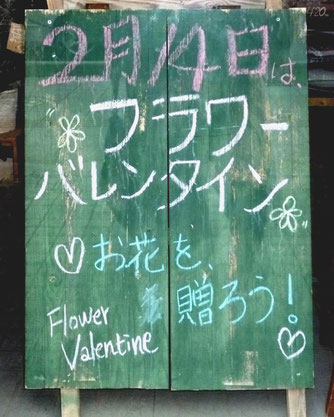 2月14日は、
フラワー
バレンタイン
お花を、
贈ろう!
Flower
Valentine